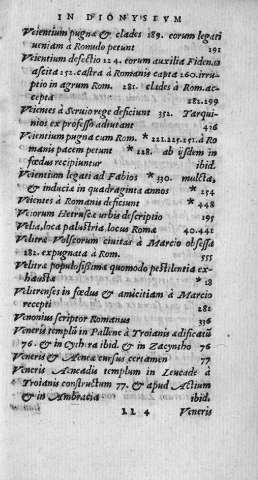 IN DIONYSEVM
Veientium pugna & clades 189. eorum legati
ueniam à Romulo petunt 191
Veientium defectio 124. eorum auxilia Fidenas
ascita 252. castra à Romanis capta 260. irru-
ptio in agrum Rom. 281. clades à Rom. ac-
cepta 281.299
Veientes à Seruio rege deficiunt 352. Tarqui-
nios ex professo adiuuant 436
Veientium pugna cum Rom. * 221.225.251. à Ro
manis pacem petunt * 228. ab ijsdem in
fœdus recipiuntur ibid.
Veientium legati ad Fabios * 330. mulcta,
& inducia in quadraginta annos * 254
Veientes à Romanis deficiunt * 448
Veiorum Hetruscæ urbis descriptio 195
Velia, loca palustria, locus Roma 40.441
Velitræ Volscorum ciuitas à Marcio obsessa
282. expugnata à Rom. 555
Velitræ populosissima quomodo pestilentia ex-
hausta * 18
Veliterenses in fœdus & amicitiam à Marcio
recepti 282
Venonius scriptor Romanus 336
Veneris templū in Pallene à Troianis ædificatū
76. & in Cythera ibid. & in Zacyntho 76
Veneris & Aeneæ cursus certamen 77
Veneris Aeneadis templum in Leucade à
Troianis constructum 77. & apud Actium
& in Ambracia ibid.
LL 4 Veneris